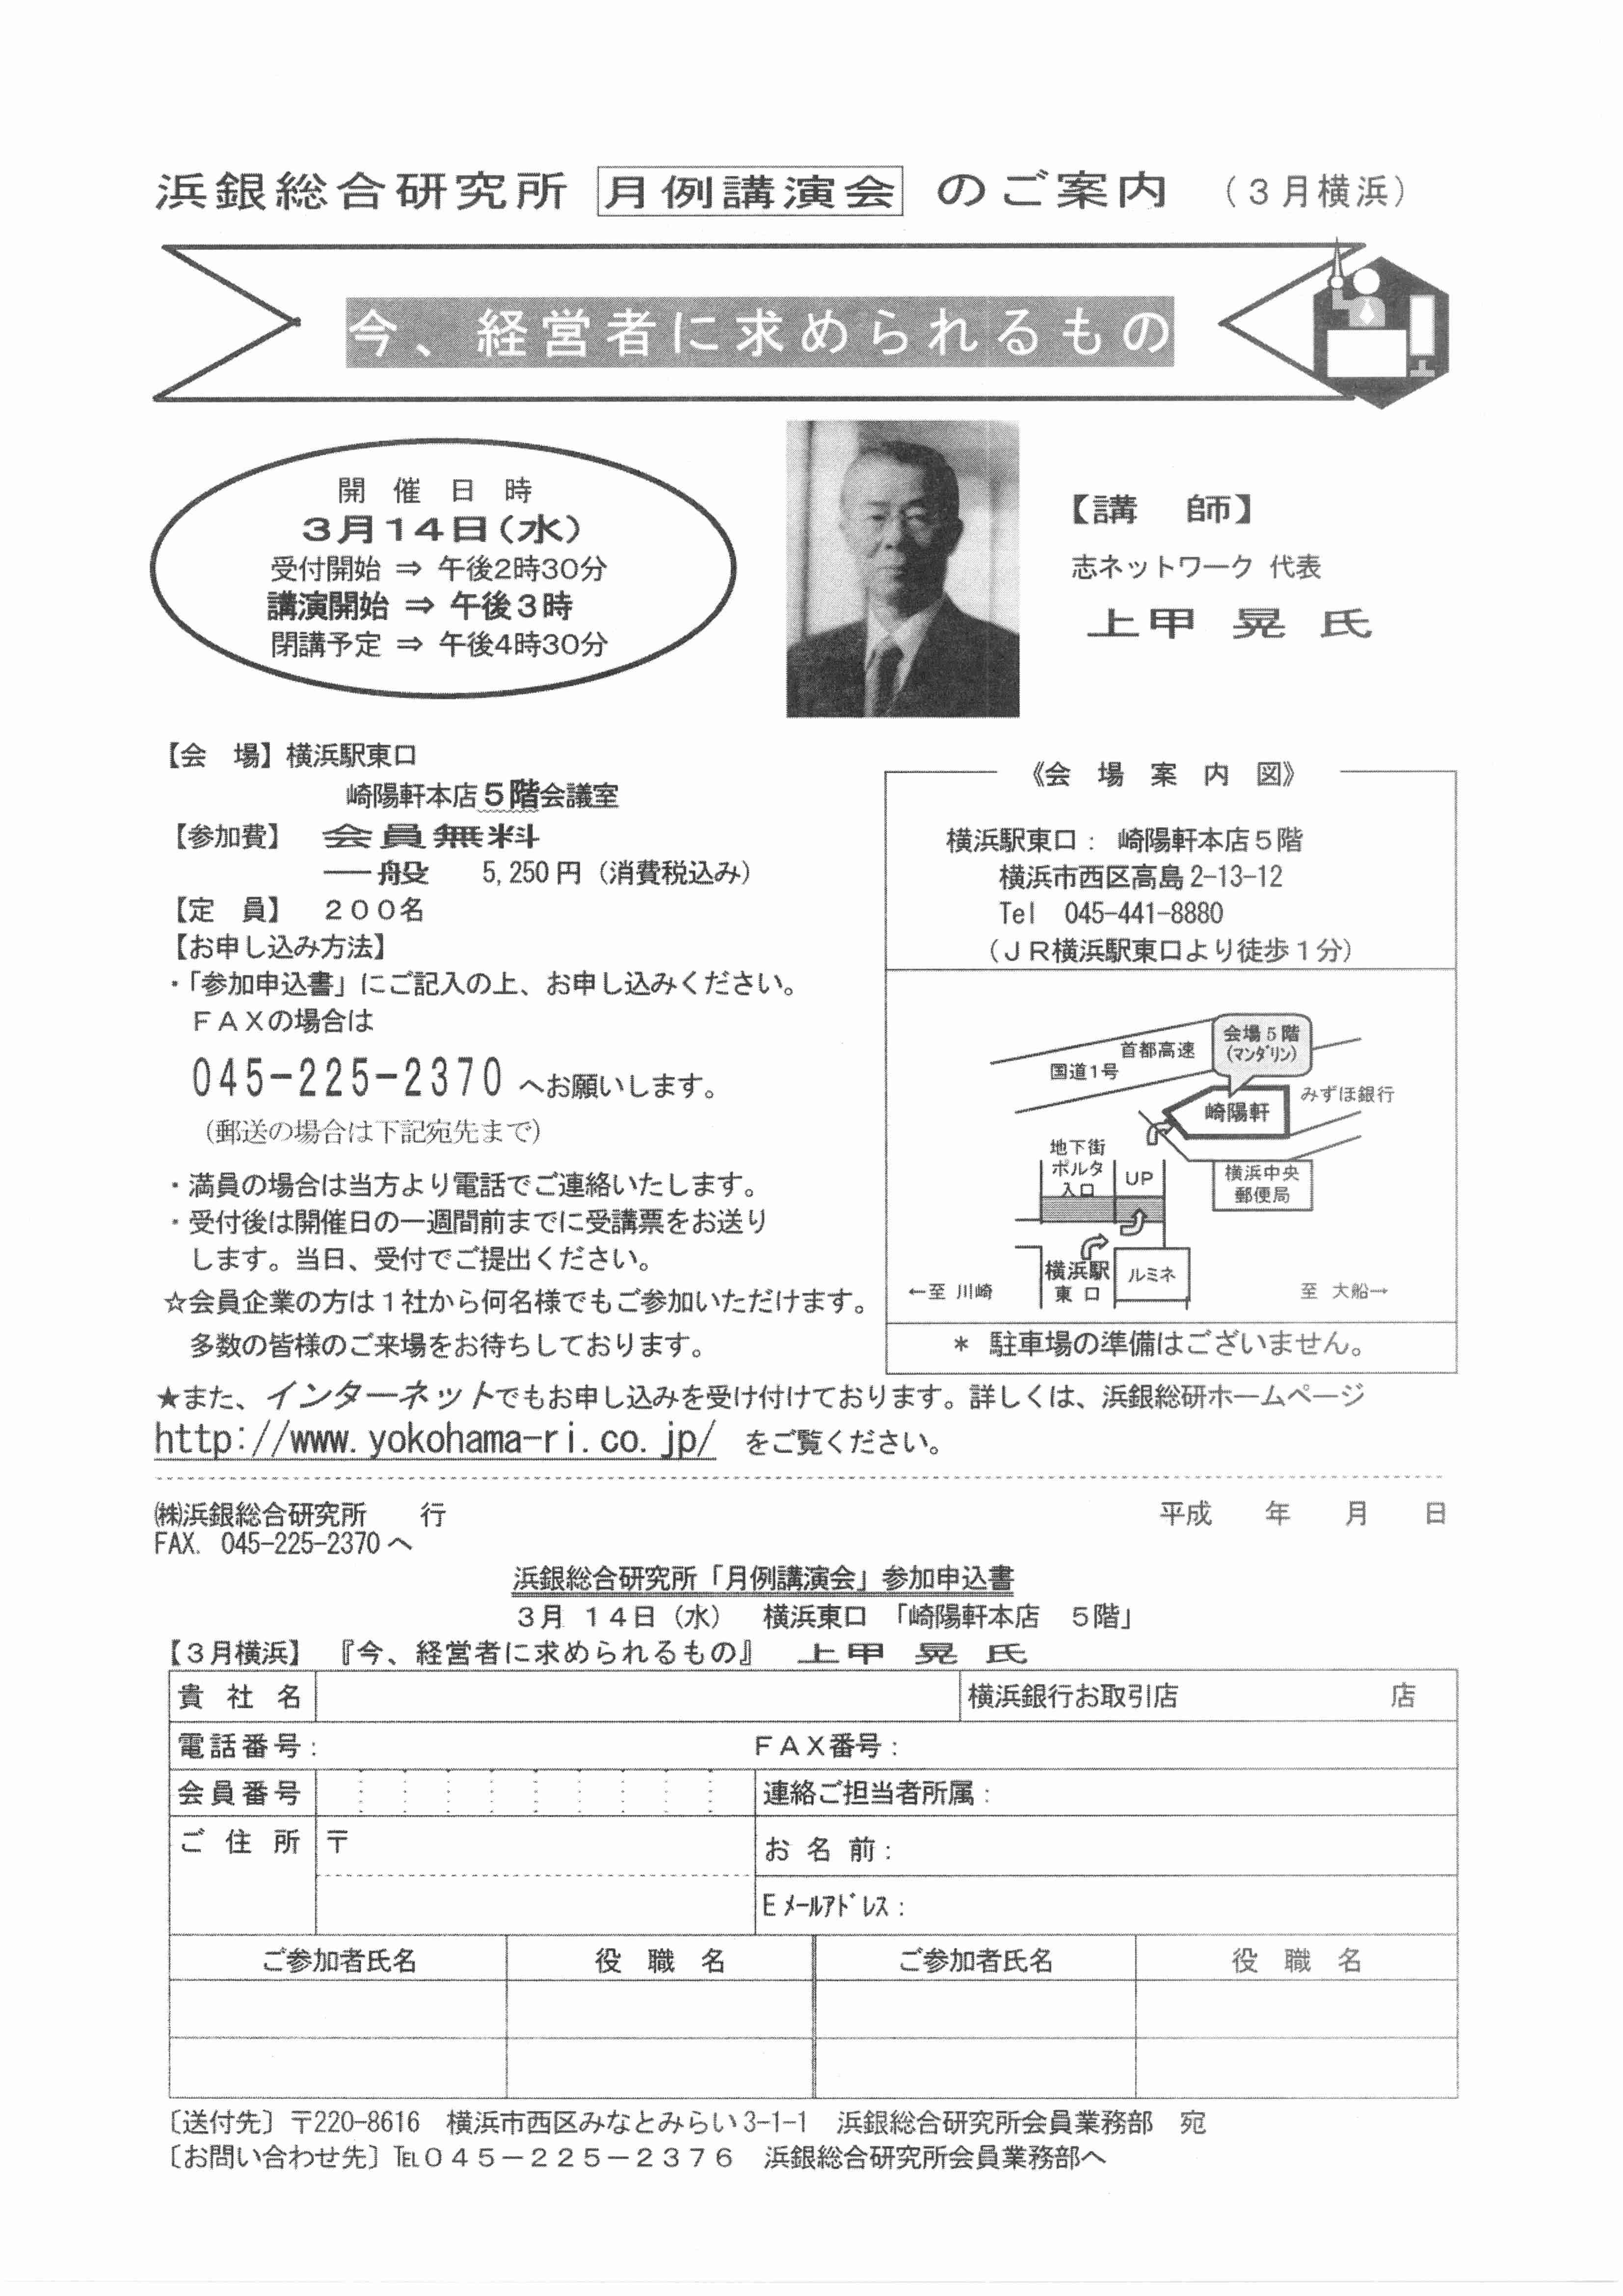 浜銀総合研究所 月例講演会 のご案内 （３月横浜）
今、経営者に求められるもの
開 催 日 時
３月１４日（水）
受付開始 ⇒ 午後２時３０分
講演開始 ⇒ 午後３時
閉講予定 ⇒ 午後４時３０分
【講　師】
志ネットワーク 代表
上甲 晃 氏
【会　場】横浜駅東口
崎陽軒本店５階会議室
【参加費】 会員無料
一般 5,250円（消費税込み）
【定　員】 ２００名
【お申し込み方法】
・「参加申込書」にご記入の上、お申し込みください。
ＦＡＸの場合は
045-225-2370 へお願いします。
（郵送の場合は下記宛先まで）
・満員の場合は当方より電話でご連絡いたします。
・受付後は開催日の一週間前までに受講票をお送り
します。当日、受付でご提出ください。
☆会員企業の方は１社から何名様でもご参加いただけます。
多数の皆様のご来場をお待ちしております。
《会 場 案 内 図》
横浜駅東口： 崎陽軒本店５階
横浜市西区高島2-13-12
Tel 045-441-8880
（ＪＲ横浜駅東口より徒歩１分）
首都高速
会場５階
（マンダリン）
国道1号
みずほ銀行
崎陽軒
地下街
ポルタ
入口
UP
横浜中央
郵便局
横浜駅
東 口
ルミネ
←至 川崎
至 大船→
＊ 駐車場の準備はございません。
★また、インターネットでもお申し込みを受け付けております。詳しくは、浜銀総研ホームページ
http://www.yokohama-ri.co.jp/ をご覧ください。
㈱浜銀総合研究所　行
平成　　年　　月　　日
FAX. 045-225-2370 へ
浜銀総合研究所「月例講演会」参加申込書
３月 １４日（水） 横浜東口 「崎陽軒本店　５階」
【３月横浜】 『今、経営者に求められるもの』 上甲 晃 氏
貴 社 名 横浜銀行お取引店 店
電話番号： ＦＡＸ番号：
会員番号 連絡ご担当者所属：
ご 住 所 〒 お 名 前：
Ｅﾒｰﾙｱﾄﾞﾚｽ：
ご参加者氏名 役 職 名 ご参加者氏名 役 職 名
〔送付先〕〒220-8616 横浜市西区みなとみらい3-1-1 浜銀総合研究所会員業務部 宛
〔お問い合わせ先〕℡０４５－２２５－２３７６ 浜銀総合研究所会員業務部へ